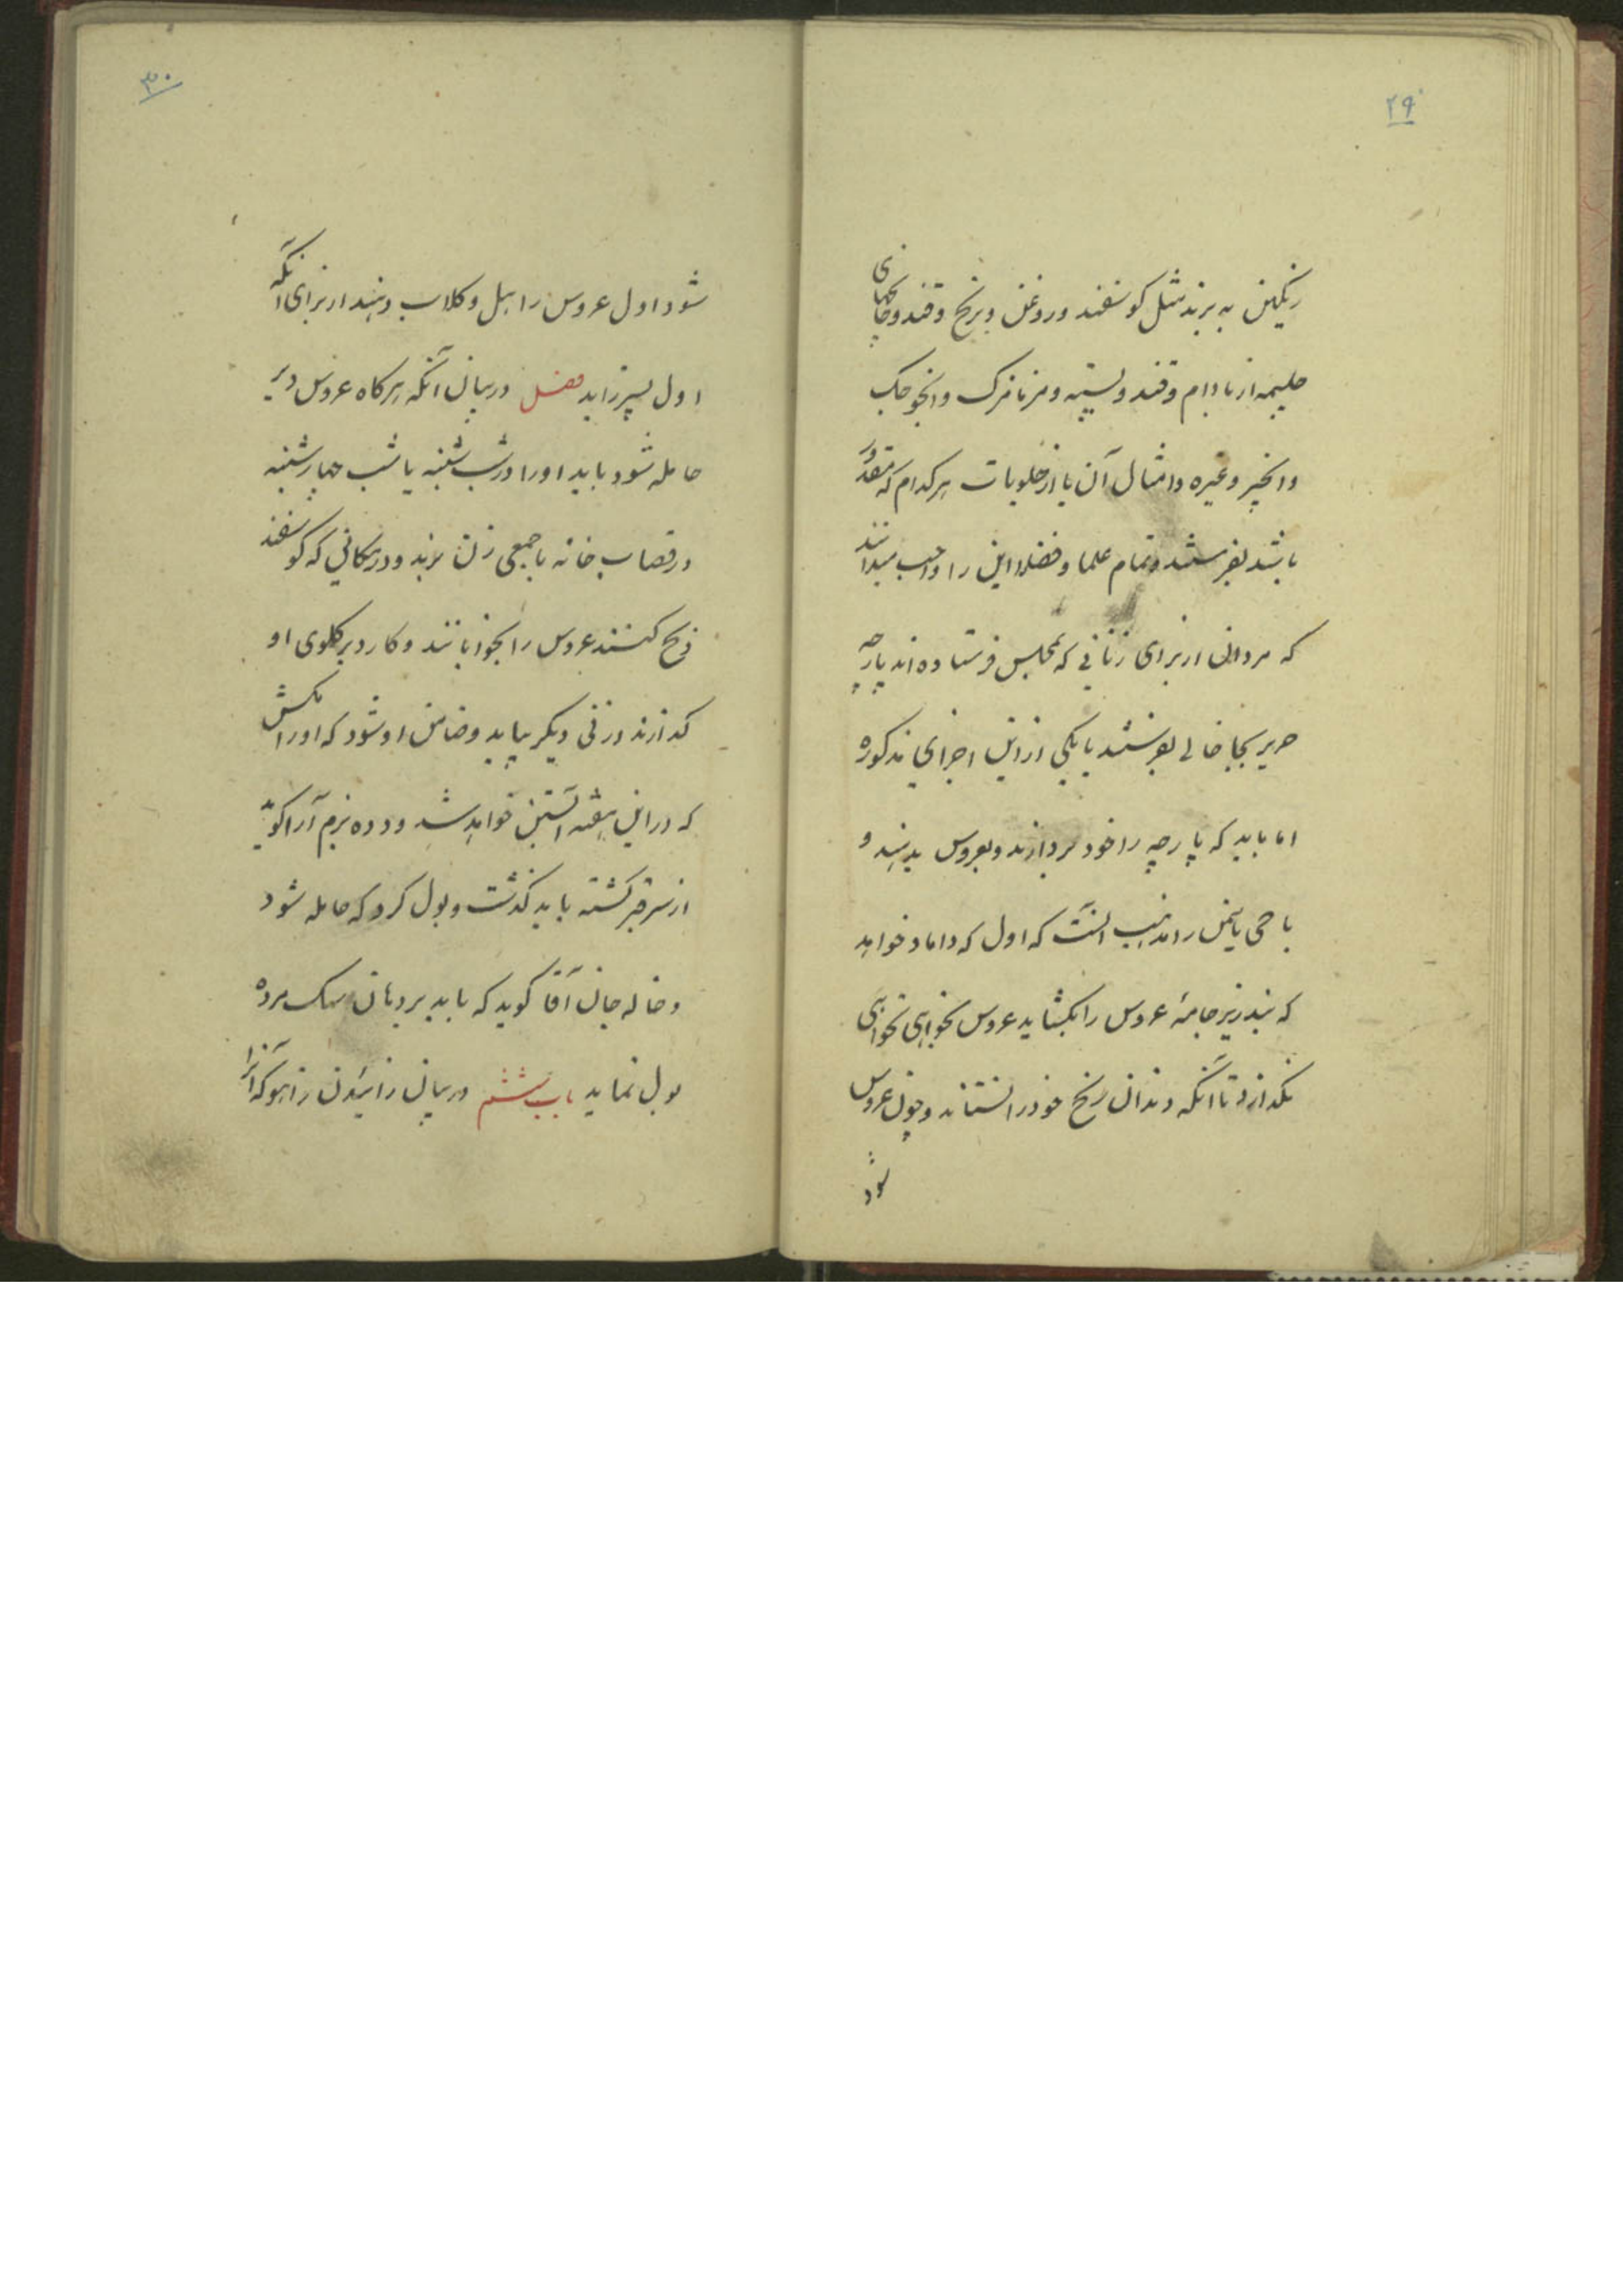 ۲۹
رنگین به برند مثل کوسفند و روغن و برنج و قند و
حلیمه از بادام و قند و پسته و مرنامرک و انجوجک
و انجیر و غیره و امثال آن یا از حلویات هر کدام که مقدور
باشد بفرستند و تمام علما و فضلا این را واجب میدانند
که مردان از برای زنانی که بمجلس فرستاده اند پارچه
حریر بجا خالی بفرستند با یکی از این اجزای مذکوره
اما باید که پارچه را خود بردارند و بعروس بدهند و
باجی یاسمن را مذهب آنست که اول که داماد خواهد
که بند زیر جامهٔ عروس را بکشاید عروس بخواهی نخواهی
نکذارد تا آنکه دندان رنج خود را نستاند و چون عروس
شود
۳۰
شود اول عروس را بهل و کلاب دهند از برای آنکه
اول پسر زاید فصل در بیان آنکه هرکاه عروس دیر
حامله شود باید او را در شب شنبه یا شب چهارشنبه
در قصاب خانه با جمعی زنان برند و در مکانی که کوسفند
ذبح کنند عروس را بخوابانند و کارد بر کلوی او
کذارند و زنی دیکر بیاید و ضامن او شود که او را مکش
که در این هفته آبستن خواهد شد و دده بزم آرا کوید
از سر قبر کشته باید کذشت و بول کرد که حامله شود
و خاله جان آقا کوید که باید بر دهان سک مرده
بول نماید باب ششم در بیان زائیدن زاهو که آنرا